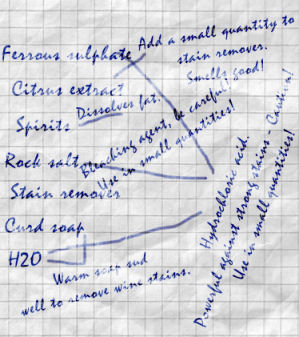 Ferrous sulphate
Citrus extract
Spirits
Rock salt
Stain remover
Curd soap
H2O
Add a small quantity to
stain remover.
Smells good!
Dissolves fat.
Bleaching agent, be careful!
Use in small quantities!
Hydrochloric acid.
Powerful against strong stains - Caution!
Use in small quantities!
Warm soap sud
well to remove wine stains.